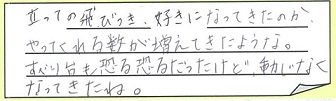 立っての飛びつき、好きになってきたのか、
やってくれる数が増えてきたような。
すべり台も恐る恐るだったけど、動じなく
なってきたね。